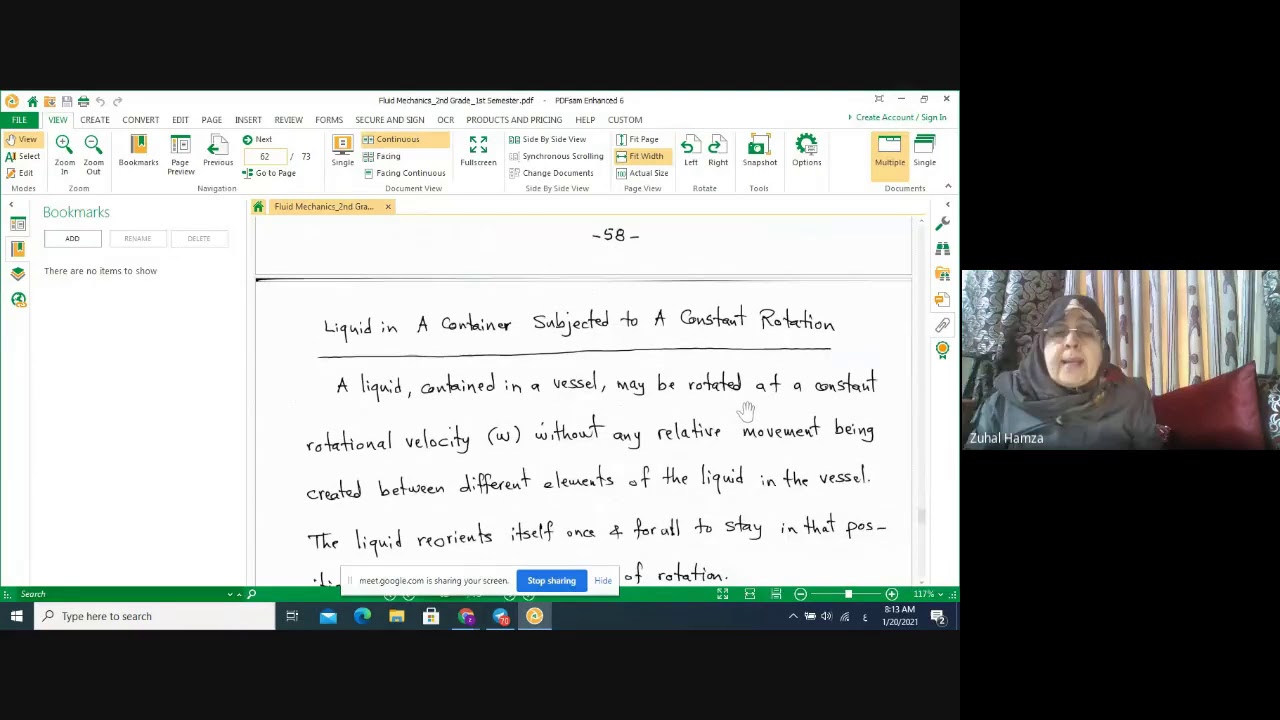 Fluid Mechanics_2nd Grade_1st Semester.pdf - PDFsam Enhanced 6
FILE VIEW CREATE CONVERT EDIT PAGE INSERT REVIEW FORMS SECURE AND SIGN OCR PRODUCTS AND PRICING HELP CUSTOM
Create Account / Sign In
View
Select
Edit
Modes
Zoom In
Zoom Out
Zoom
Bookmarks
Page Preview
Previous
Next
62 / 73
Go to Page
Navigation
Single
Continuous
Facing
Facing Continuous
Document View
Fullscreen
Side By Side View
Synchronous Scrolling
Change Documents
Side By Side View
Fit Page
Fit Width
Actual Size
Page View
Left
Right
Rotate
Snapshot
Tools
Options
Multiple
Single
Documents
Bookmarks
ADD RENAME DELETE
There are no items to show
Fluid Mechanics_2nd Gra...
-58-
Liquid in A Container Subjected to A Constant Rotation
A liquid, contained in a vessel, may be rotated at a constant
rotational velocity (w) without any relative movement being
created between different elements of the liquid in the vessel.
The liquid reorients itself once & for all to stay in that pos-
of rotation.
meet.google.com is sharing your screen. Stop sharing Hide
Search
117%
Type here to search
70
8:13 AM
1/20/2021
2
Zuhal Hamza